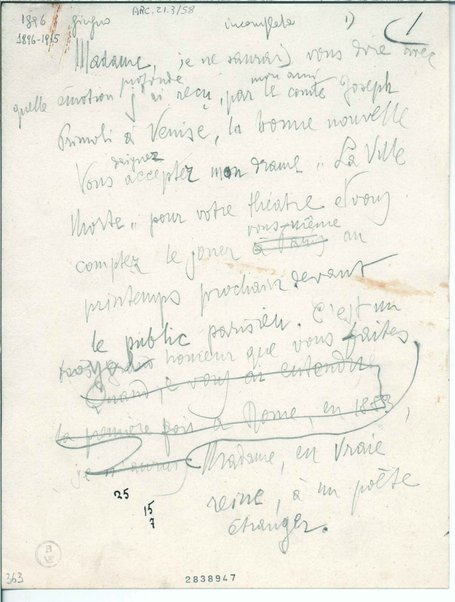 1896 giugno ARC. 21.3/58 incompleta 1) 1
1896-1915
Madame, je ne saurais vous dire avec
profonde mon ami
quelle émotion j'ai reçu, par le comte Joseph
Primoli à Venise, la bonne nouvelle
daignez
Vous acceptez mon drame "La Ville
Morte" pour votre théâtre et vous
vous-même
comptez le jouer à Paris au
printemps prochain devant
le public parisien. C'est un
honneur que vous faites
Quand je vous ai entendue
la première fois à Rome, en
je
Madame, en vraie
reine, à un poète
étranger.
25
15
7
B
363
2838947